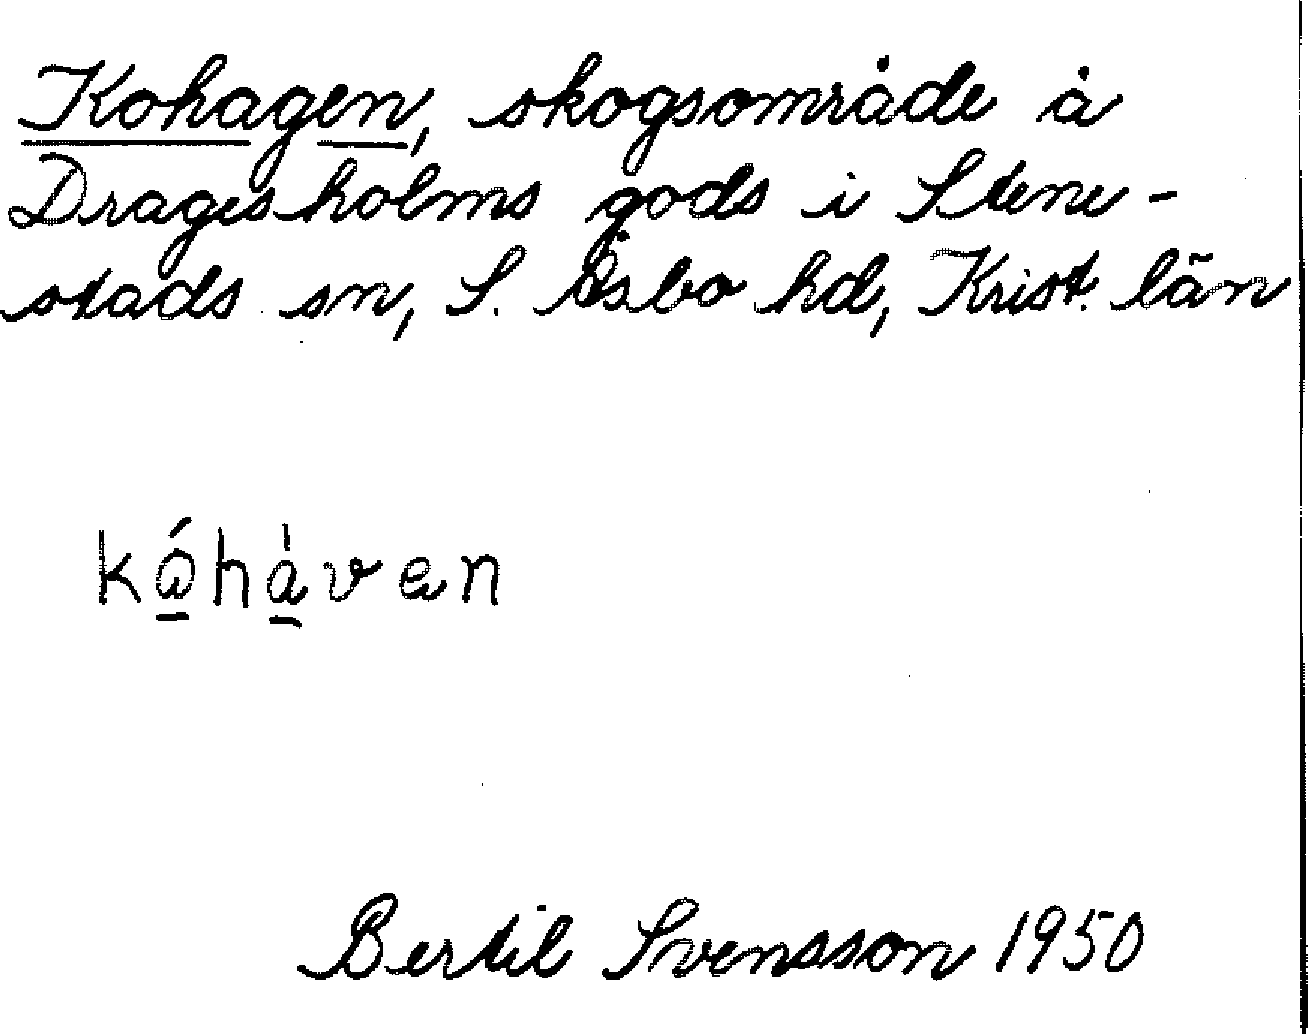 Kohagen, skogsområde å
Dragesholms gods i Stene-
stads sn, S. Åsbo hd, Krist. län
kóhàven
Bertil Svensson 1950